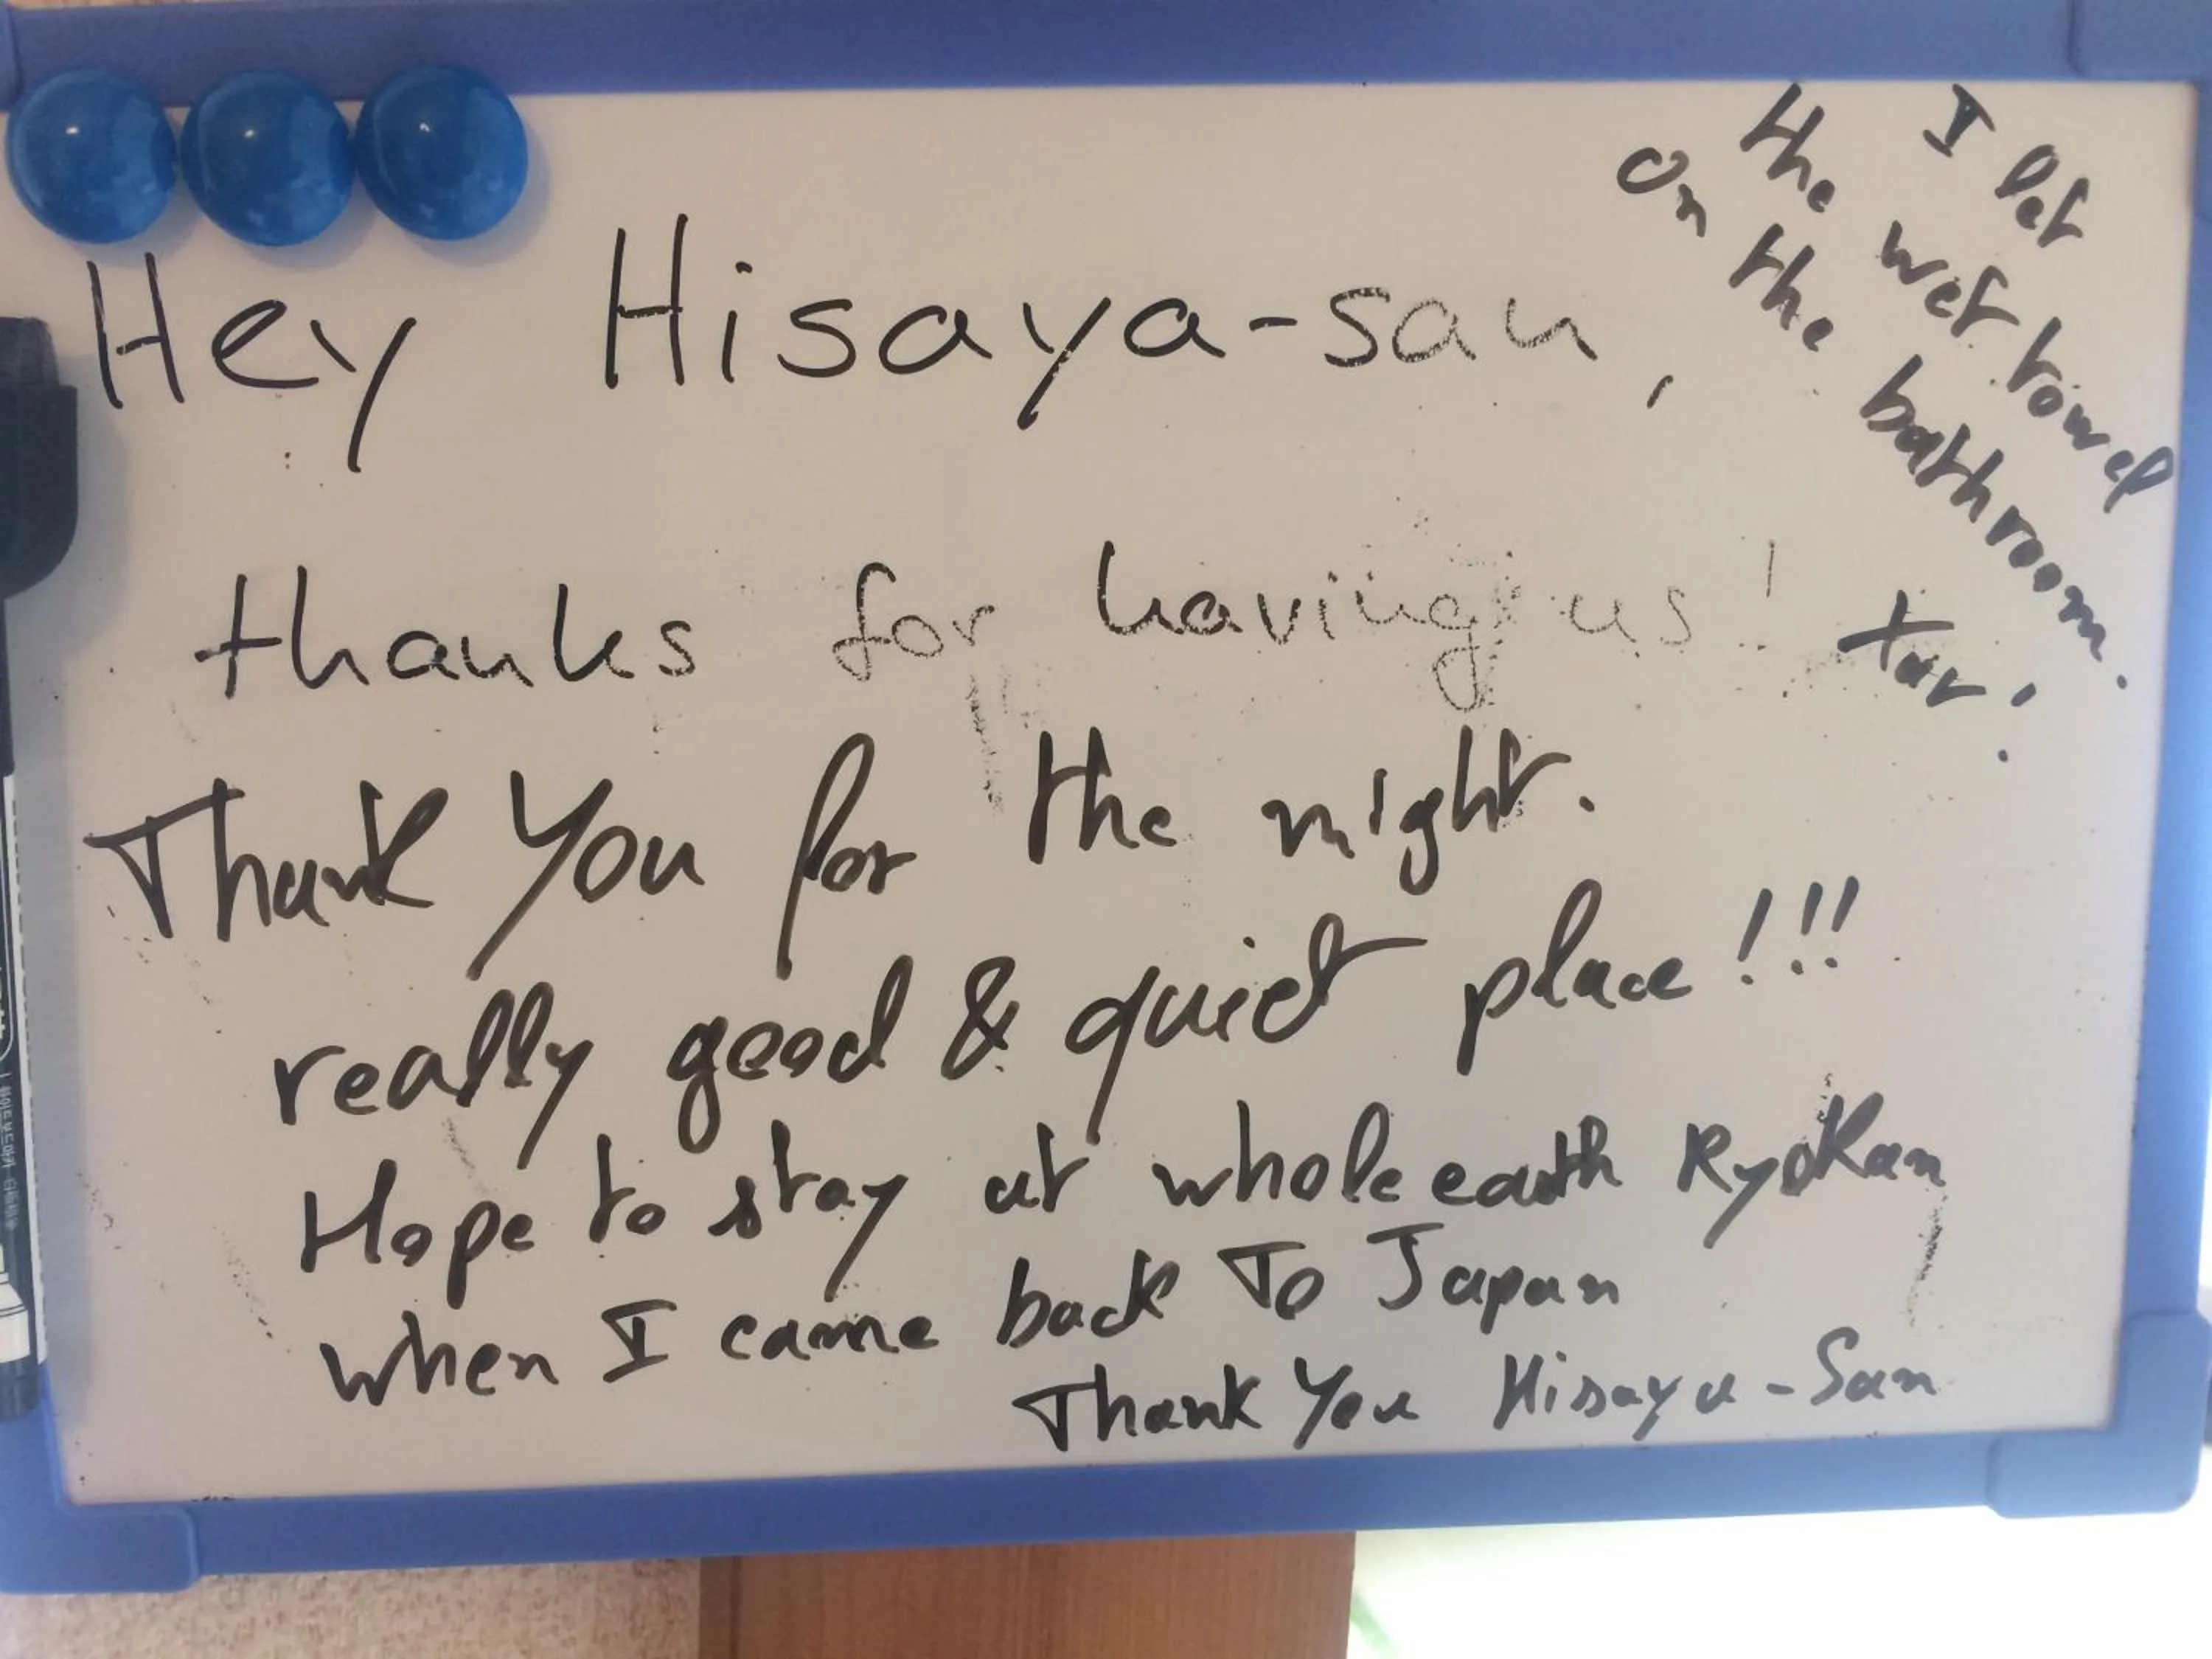 Hey Hisaya-san,
thanks for having us!
I let
the wet towel
on the bathroom.
Thank You for the night.
really good & quiet place!!!
Hope to stay at whole earth Ryokan
when I came back To Japan
Thank You Hisaya-San